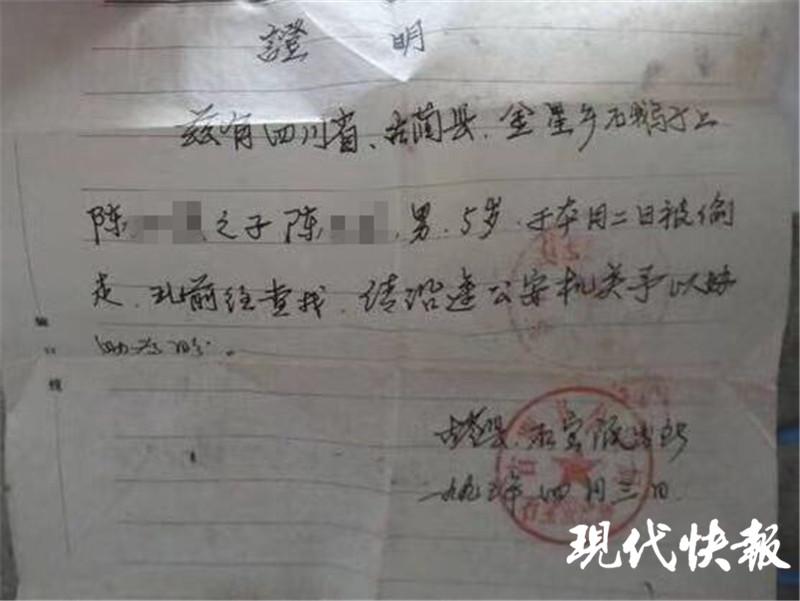 證明
兹有四川省、古蔺县、金星乡
陈 之子陈 ，男，5岁，于本月二日被偷
走，现前往查找，请沿途公安机关予以协
助为盼。
古蔺县 石宝派出所
一九九 年四月三日
装 订 线
现代快報